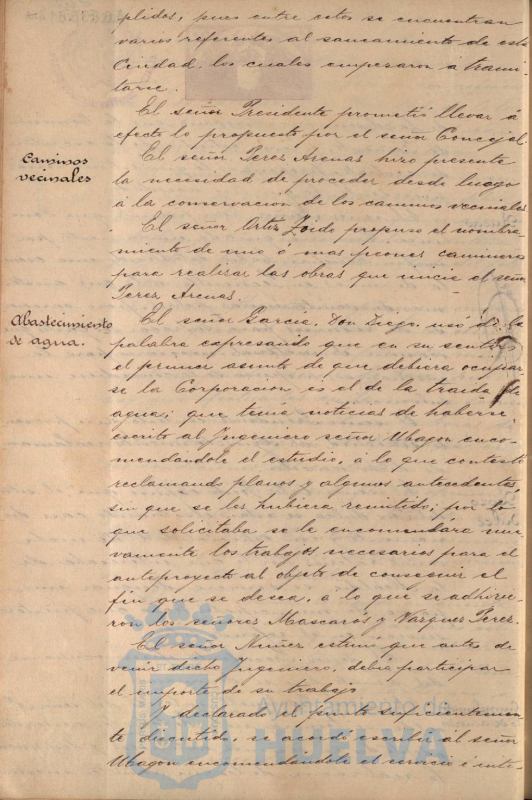 plidos, pues entre estos se encuentran
varios referentes al saneamiento de esta
Ciudad, los cuales empesaron a trami-
tarse.
El señor Presidente prometió llevar á
efecto lo propuesto por el señor Concejal.
Caminos
vecinales
El señor Perez Arenas hizo presente
la necesidad de proceder desde luego
á la conservacion de los caminos vecinales
El señor Ortiz Zoido propuso el nombra-
miento de uno ó mas peones camineros
para realizar las obras que inicie el señor
Perez Arenas.
Abastecimiento
de agua.
El señor García, Don Diego, usó de la
palabra expresando que en su sentir
el primer asunto de que debiera ocupar
se la Corporacion es el de la traida de
agua; que tenia noticias de haberse
escrito al Ingeniero señor Ubagon enco-
mendándole el estudio, á lo que contestó
reclamando planos y algunos antecedentes
sin que se les hubiera remitido; por lo
que solicitaba se le encomendára nue-
vamente los trabajos necesarios para el
anteproyecto al objeto de conseguir el
fin que se desea, á lo que se adhirie-
ron los señores Mascarós y Vazquez Perez.
El señor Nuñez estimó que antes de
venir dicho Ingeniero, debia participar
el importe de su trabajo
Y declarado el punto suficientemen-
te discutido, se acordó escribir al señor
Ubagon encomendándole el servicio é inte-
Ayuntamiento de
HUELVA